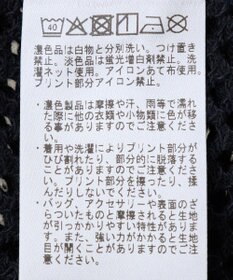 40
濃色品は白物と分別洗い。つけ置き
禁止。淡色品は蛍光増白剤禁止。洗
濯ネット使用。アイロンあて布使用。
プリント部分アイロン禁止。
・濃色製品は摩擦や汗、雨等で濡れ
た際に他の衣類や小物類に色が移
る事がありますのでご注意くださ
い。
・着用や洗濯によりプリント部分が
ひび割れたり、部分的に脱落する
ことがありますのでご注意くださ
い。プリント部分を擦ったり、揉
んだりしないでください。
・バッグ、アクセサリーや表面のざ
らついたものと摩擦されると生地
が引っかかりやすい特性がありま
す。また、強い力がかかると生地
目が開くことがありますのでご注
意ください。